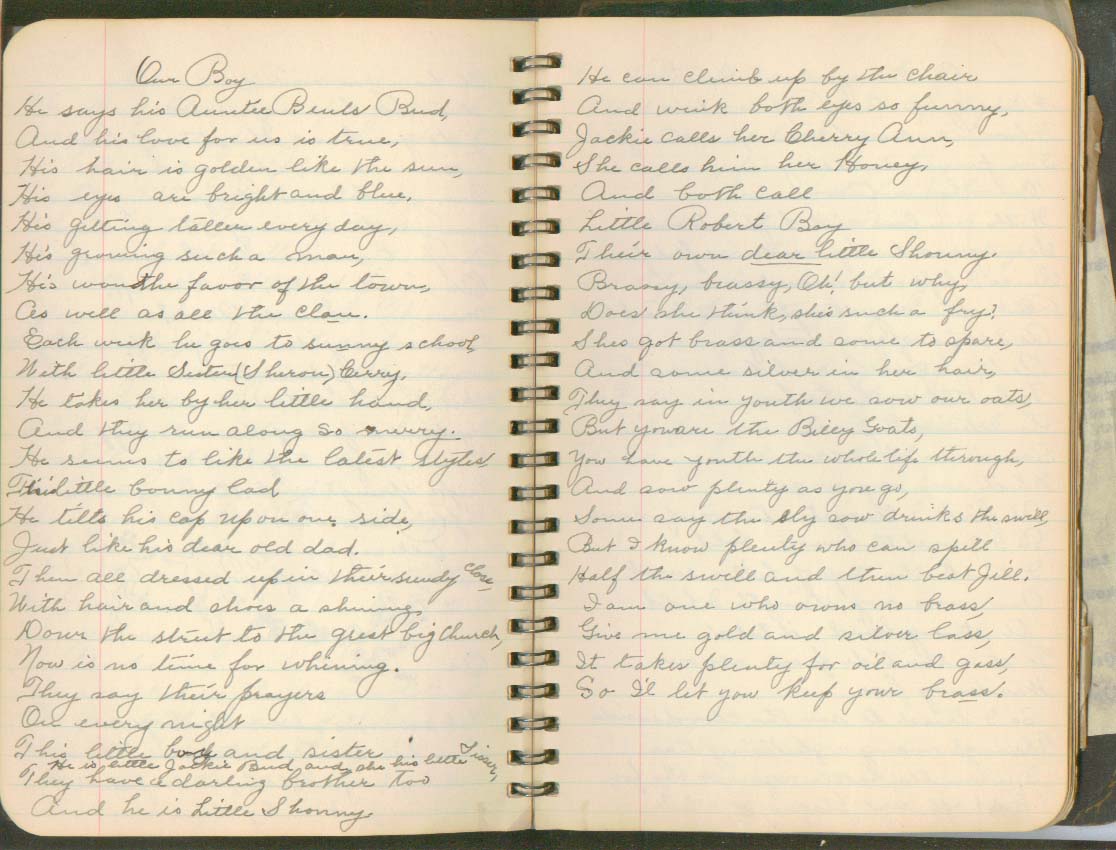 Our Boy
He says his Auntee Beuls Bud,
And his love for us is true,
His hair is golden like the sun,
His eyes are bright and blue,
His getting taller every day,
His growing such a man,
His won the favor of the town,
As well as all the clan.
Each week he goes to sunny school,
With little Sister (Sheron) Cerry,
He takes her by her little hand,
And they run along so merry.
He seems to like the latest styles,
This little bonny lad
He tilts his cap up on one side,
Just like his dear old dad.
Then all dressed up in their sundy close
With hair and shoes a shining,
Down the street to the great big church,
Now is no time for whining.
They say their prayers
On every night
This little and sister
He is little Jackie Bud, and she his little Sisser,
They have a darling brother too
And he is Little Shonny.
He can climb up by the chair
And wink both eyes so funny,
Jackie calls her Cherry Ann,
She calls him her Honey,
And both call
Little Robert Boy
Their own dear little Shonny.
Brassy, brassy, Oh! but why,
Does she think, she's such a fry?
Shes got brass and some to spare,
And some silver in her hair,
They say in youth we sow our oats,
But you are the Billy Goats,
You have youth the whole life through,
And sow plenty as you go,
Some say the sly sow drinks the swill,
But I know plenty who can spill
Half the swill and then beat Jill.
I am one who owns no brass,
Give me gold and silver lass,
It takes plenty for oil and gass,
So I'll let you keep your brass.